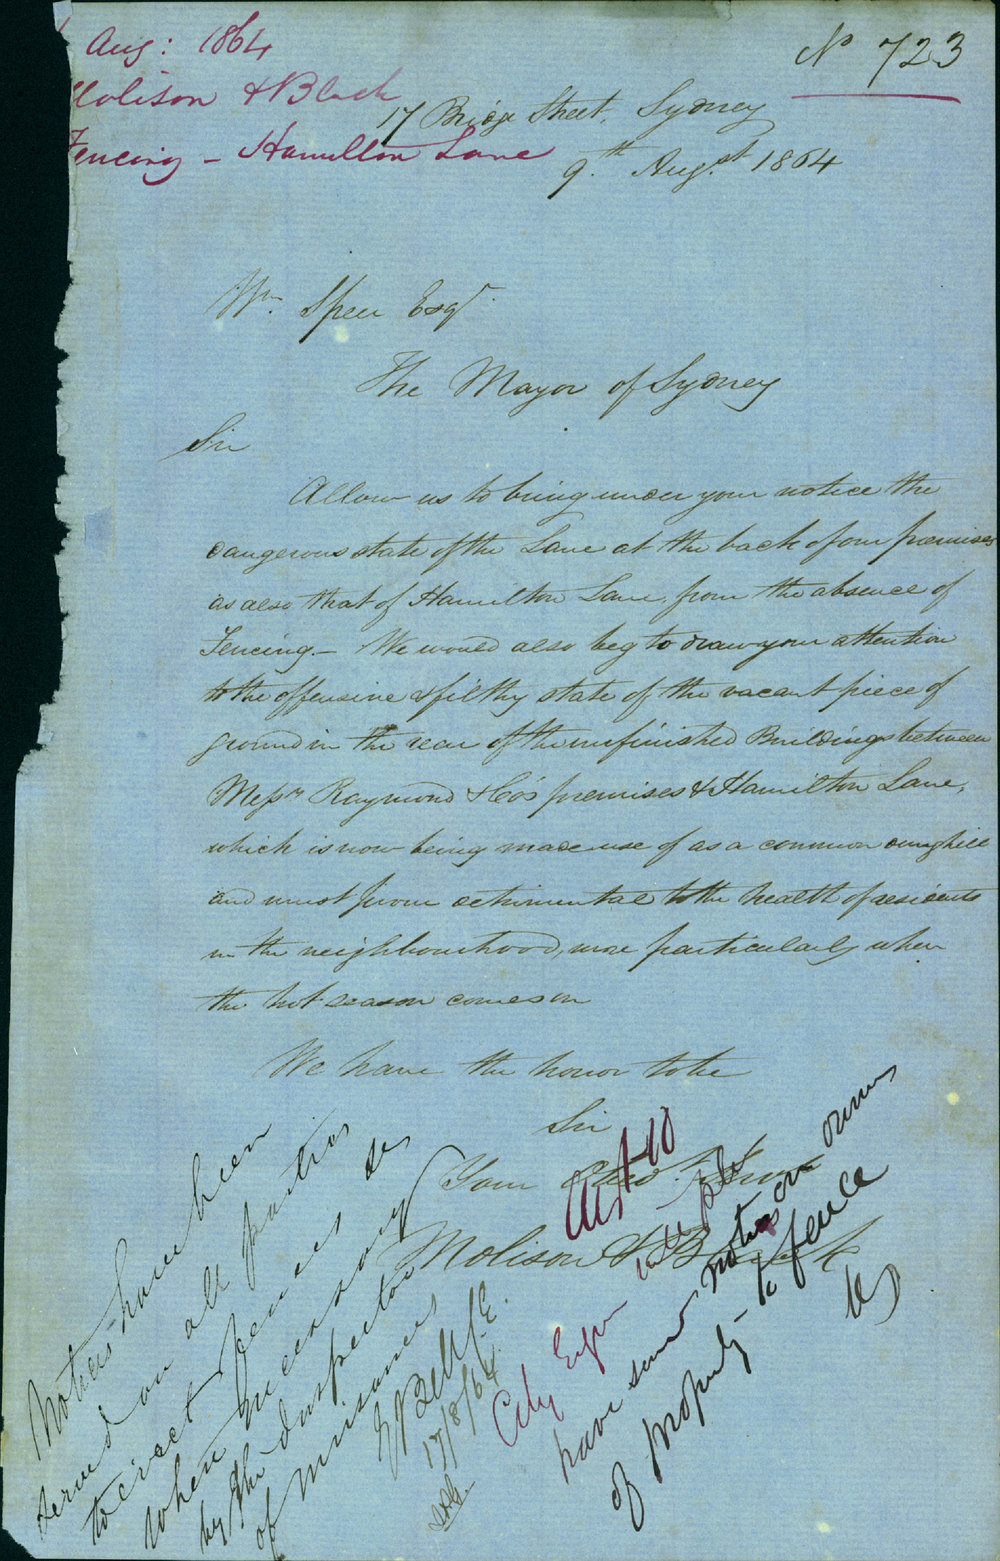 Aug: 1864
Molison & Black
Fencing - Hamilton Lane
No 723
17 Bridge Street, Sydney
9th Augst 1864
Wm. Speer Esqr
The Mayor of Sydney
Sir
Allow us to bring under your notice the
dangerous state of the Lane at the back of our premises
as also that of Hamilton Lane, from the absence of
Fencing - We would also beg to draw your attention
to the offensive & filthy state of the vacant piece of
ground in the rear of the unfinished Buildings between
Messrs Raymond & Co's premises & Hamilton Lane,
which is now being made use of as a common dunghill
and must prove detrimental to the health of residents
in the neighbourhood, more particularly when
the hot season comes on
We have the honor to be
Sir
Your Obedt. Servts
Molison & Black
Notices have been
served on all parties
to erect fences
when necessary
by the Inspector
of nuisances
E Bell C.E.
17/8/64
City Engr
have served notices on owners
of property to fence